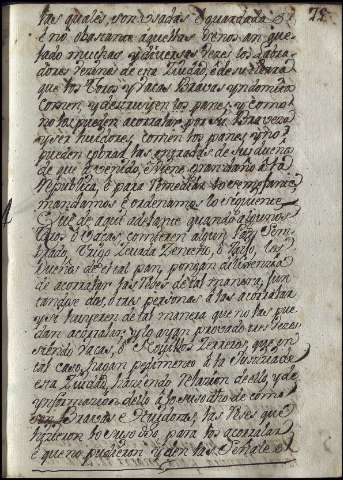 75
las quales, son usadas e guardada
e no obstante aquellas penas an que
jado muchas y diversas vezes los labra
dores vezinos de esta Ziudad, e de su tierra
que los Toros y Vacas Bravas y
comen, y destruyen los panes, y como
no los pueden acorralar por su Braveza
y ser huidores, comen los panes, y no
pueden cobrar las de sus dueños
de que a venido, e viene gran daño a la
republica, e para remediar lo semejante
mandamos e ordenamos lo siguiente
Que de aqui adelante quando algunos
Toros o Vacas, comieren algun Pan Sem
brado, Trigo Zevada Zenteno, o
Dueños de el tal pan, pongan diligencia
de acorralar las Reses de tal manera, Jun
tandose dos, o tres personas a las acorralar
y si huyeren de tal manera que no las pue
dan acorralar, y lo ayan provado tres vezes
siendo Vacas, o Novillos Terreros, que en
tal caso, hagan pedimento a la Justizia de
esta Ziudad, haziendo relazion de ello, y de
informazion dello a lo susodicho de como
son Bravas e Huidoras, las Reses que
hizieron lo susodicho para los acorralar
e que no pudieron y den las Señales